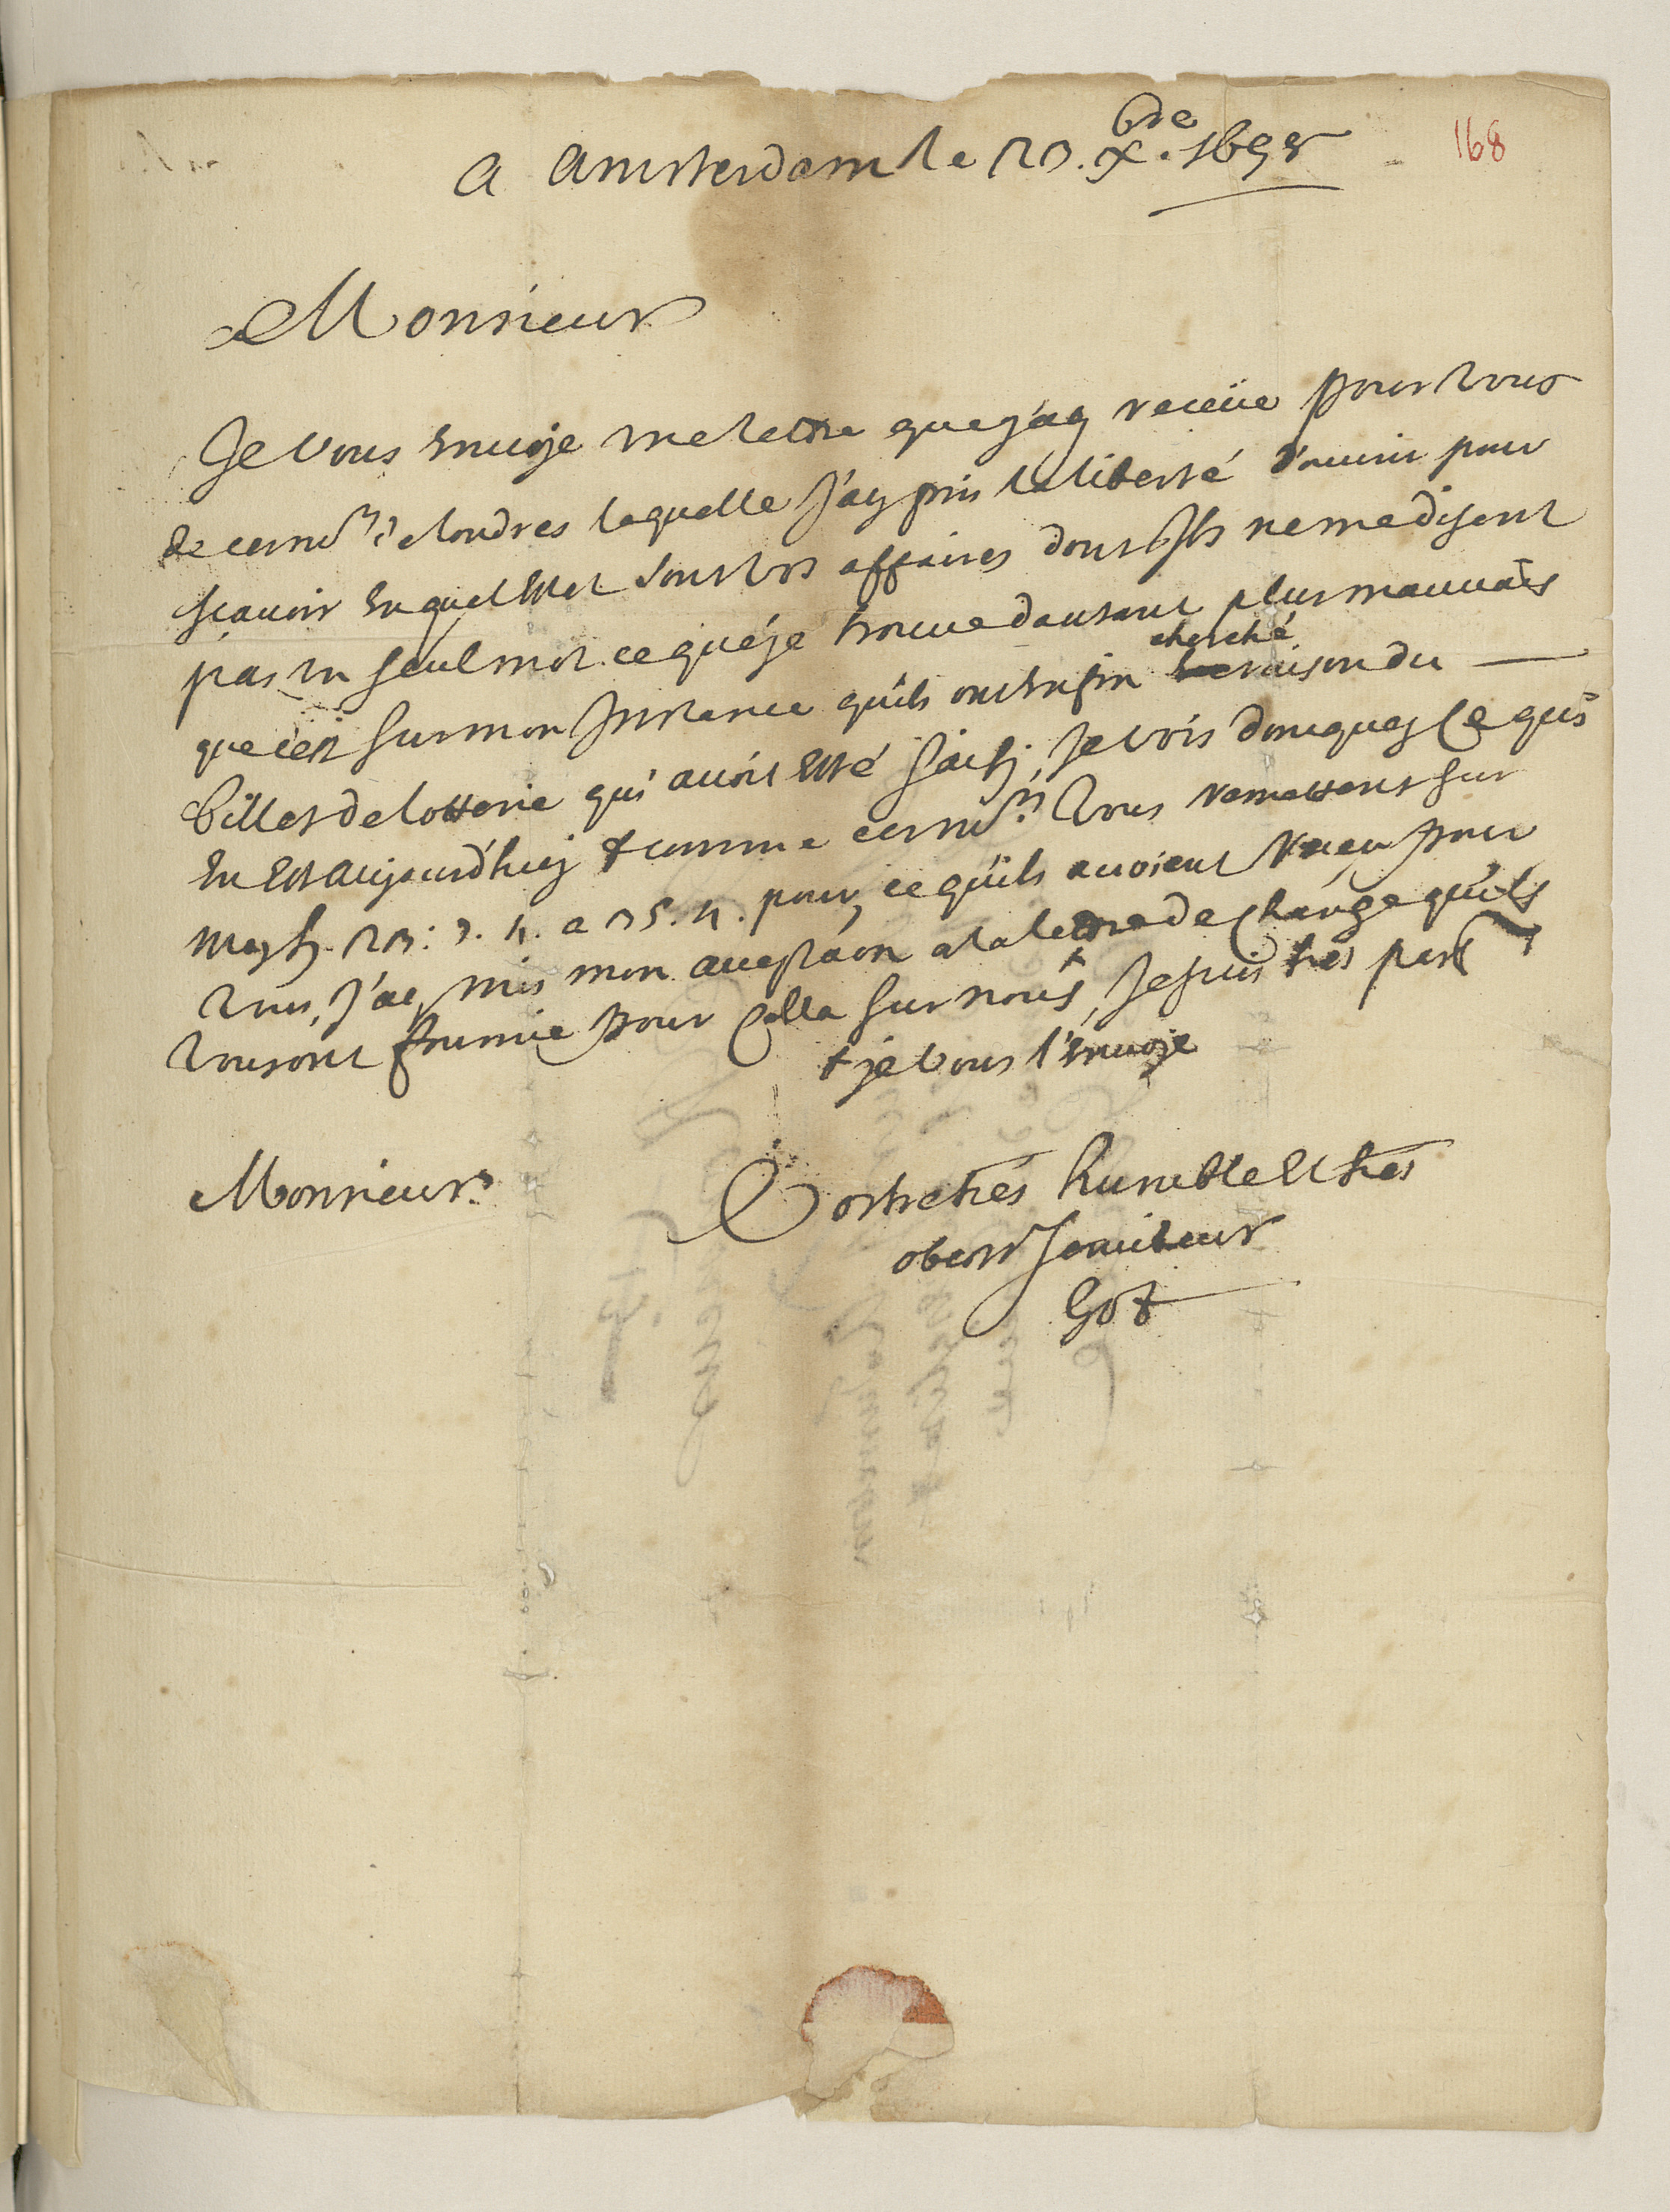 168
a Amsterdam le 23. Xbre. 1698
Monsieur
Je vous Envoije une lettre que j'aij receüe pour vous
de ces mrs de londres laquelle J'aij pris la liberté d'ouvrir pour
sçavoir En quel Estat sont vos affaires dont Ils ne me disent
pas un seul mot. ce que je trouve dautant plus mauvais
que c'est sur mon Instance qu'ils ont Enfin cherché raison du
billet de lotterie qui avoit Esté saisij, Je vois doncques ce quis
En Est aujourd'huij & comme ces mrs. vous remettent sur
moij 23: 3. 4. a 35. 4. pour, ce quils avoient receu pour
vous, J'aij mis mon accep̃taon a la lettre de change qu'ils
vous ont fournie pour cella sur nous +, Je suis tres parft
+ je vous l'Envoije
Monsieur
Vostre trés humble Et trés
obeist Serviteur
Got